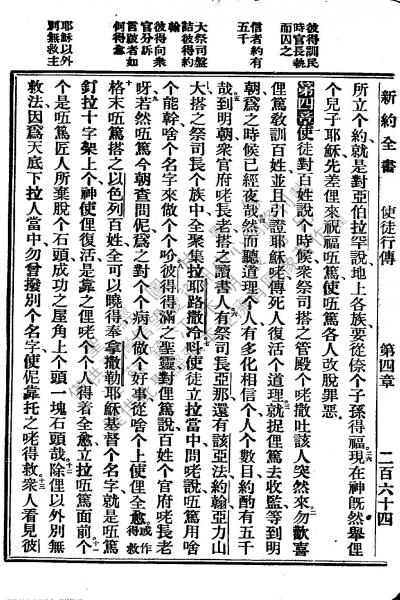 新約全書　使徒行傳　第四章　二百六十四
彼得訓民
時官長執
而囚之
信者約有
五千
大祭司盤
詰彼得約
翰
彼得向衆
官分訴
言跛者如
何得愈
耶穌以外
別無救主
所立个約就是對亞伯拉罕說地上各族要從㑚个子孫得福二六現在神旣然舉俚
个兒子耶穌先差俚來祝福㕶篤使㕶篤各人改脫罪惡
第四章使徒對百姓說个時候衆祭司搭之管殿个咾撒吐該人突然來二勿歡喜
俚篤敎訓百姓並且引證耶穌咾傳死人復活个道理三就捉俚篤去收監等到明
朝爲之時候已經夜哉四然而聽道理个人有多化相信个人个數目約酌有五千
哉五到明朝衆官府咾長老搭之讀書人六有祭司長亞那還有該亞法約翰亞力山
大搭之祭司長个族中全聚集拉耶路撒冷七叫使徒立拉當中問咾說㕶篤用啥
个能幹啥个名字來做个个吩八彼得得滿之聖靈對俚篤說百姓个官府咾長老
呀九若然㕶篤今朝查問伲爲之對个个病人做个好事從啥个上使俚全愈或作得救
十格末㕶篤搭之以色列百姓全可以曉得奉拿撒勒耶穌基督个名字就是㕶篤
釘拉十字架上个神使俚復活是靠之俚咾个个人得着全愈立拉㕶篤面前十一个
个是㕶篤匠人所棄脫个石頭成功之屋角上个頭一塊石頭哉十二除俚以外別無
救法因爲天底下拉人當中勿曾撥別个名字使伲靠托之咾得救十三衆人看見彼